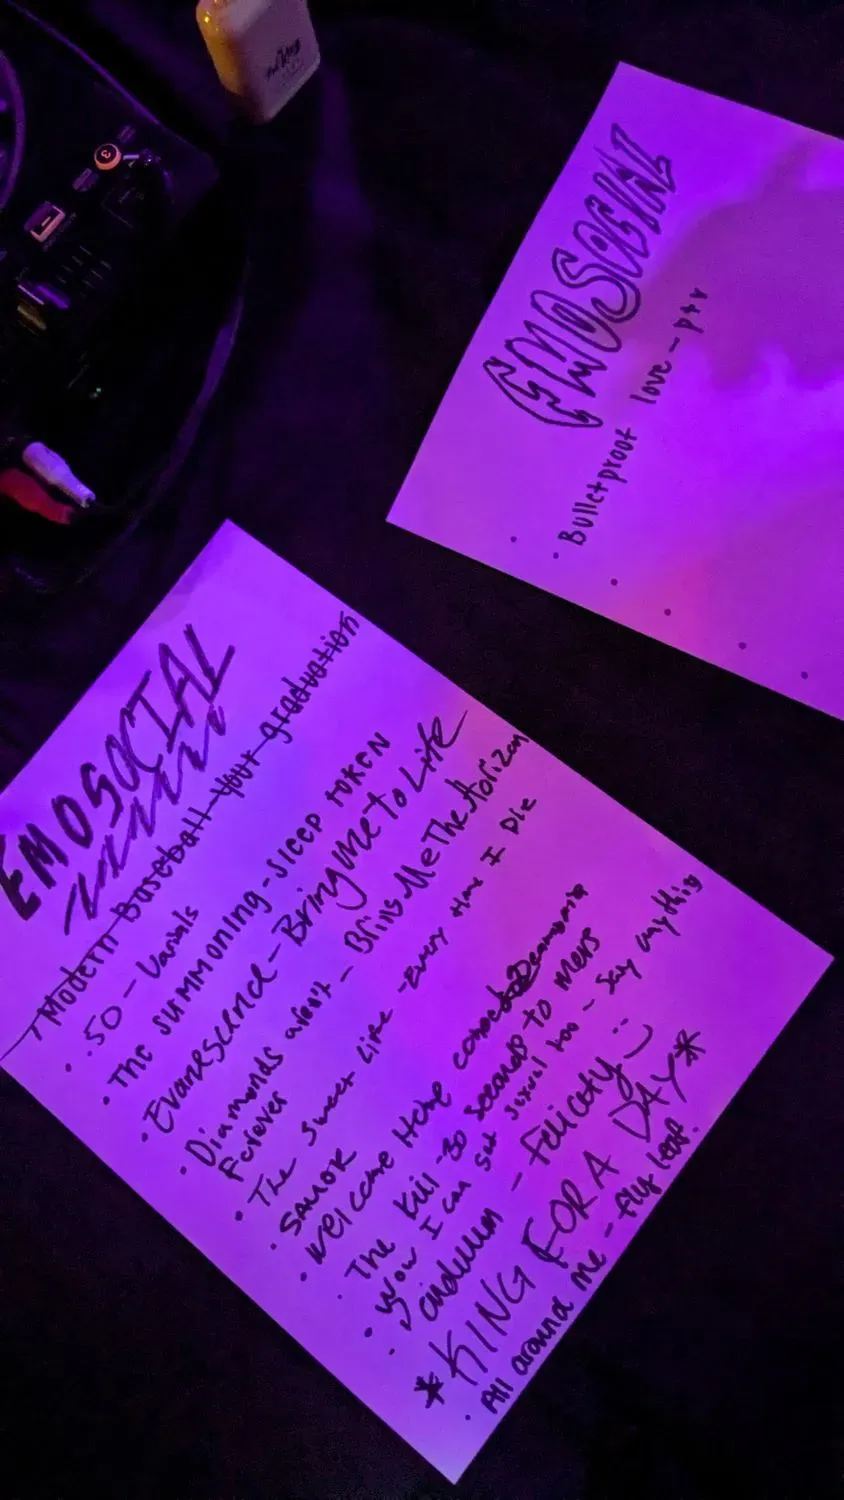 EMOSOCIAL
Bulletproof love - ptv
EMOSOCIAL
Modern Baseball - your graduation
.50 - Varials
THE SUMMONING - SLEEP TOKEN
Evanescence - Bring Me To Life
Diamonds aren't - Bring Me The Horizon
Forever
The Sweet Life - Every time I Die
Welcome Home
The Kill - 30 Seconds TO MARS
Wow I can get sexual too - Say anything
- Felicity
*KING FOR A DAY*
All around me - fly leaf.